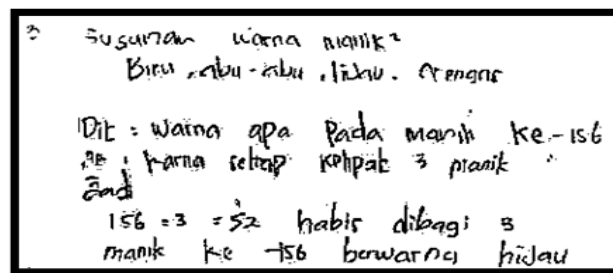 3 Susunan warna manik²
Biru, abu-abu, hijau.
Dit : Warna apa pada manik ke-156
karna setiap kelipat 3 manik
Jadi
156 : 3 = 52 habis dibagi 3
manik ke -156 berwarna hijau